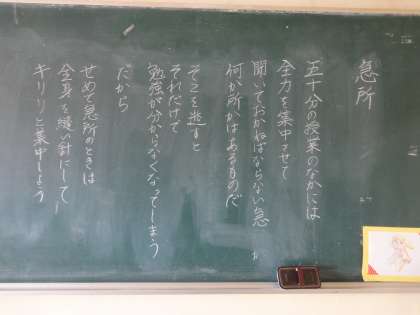 急所
五十分の授業のなかには
全力を集中させて
聞いておかねばならない急
何か所かはあるものだ
そこを逃すと
それだけで
勉強が分からなくなってしまう
だから
せめて急所のときは
全身を縫い針にして
キリリと集中しよう